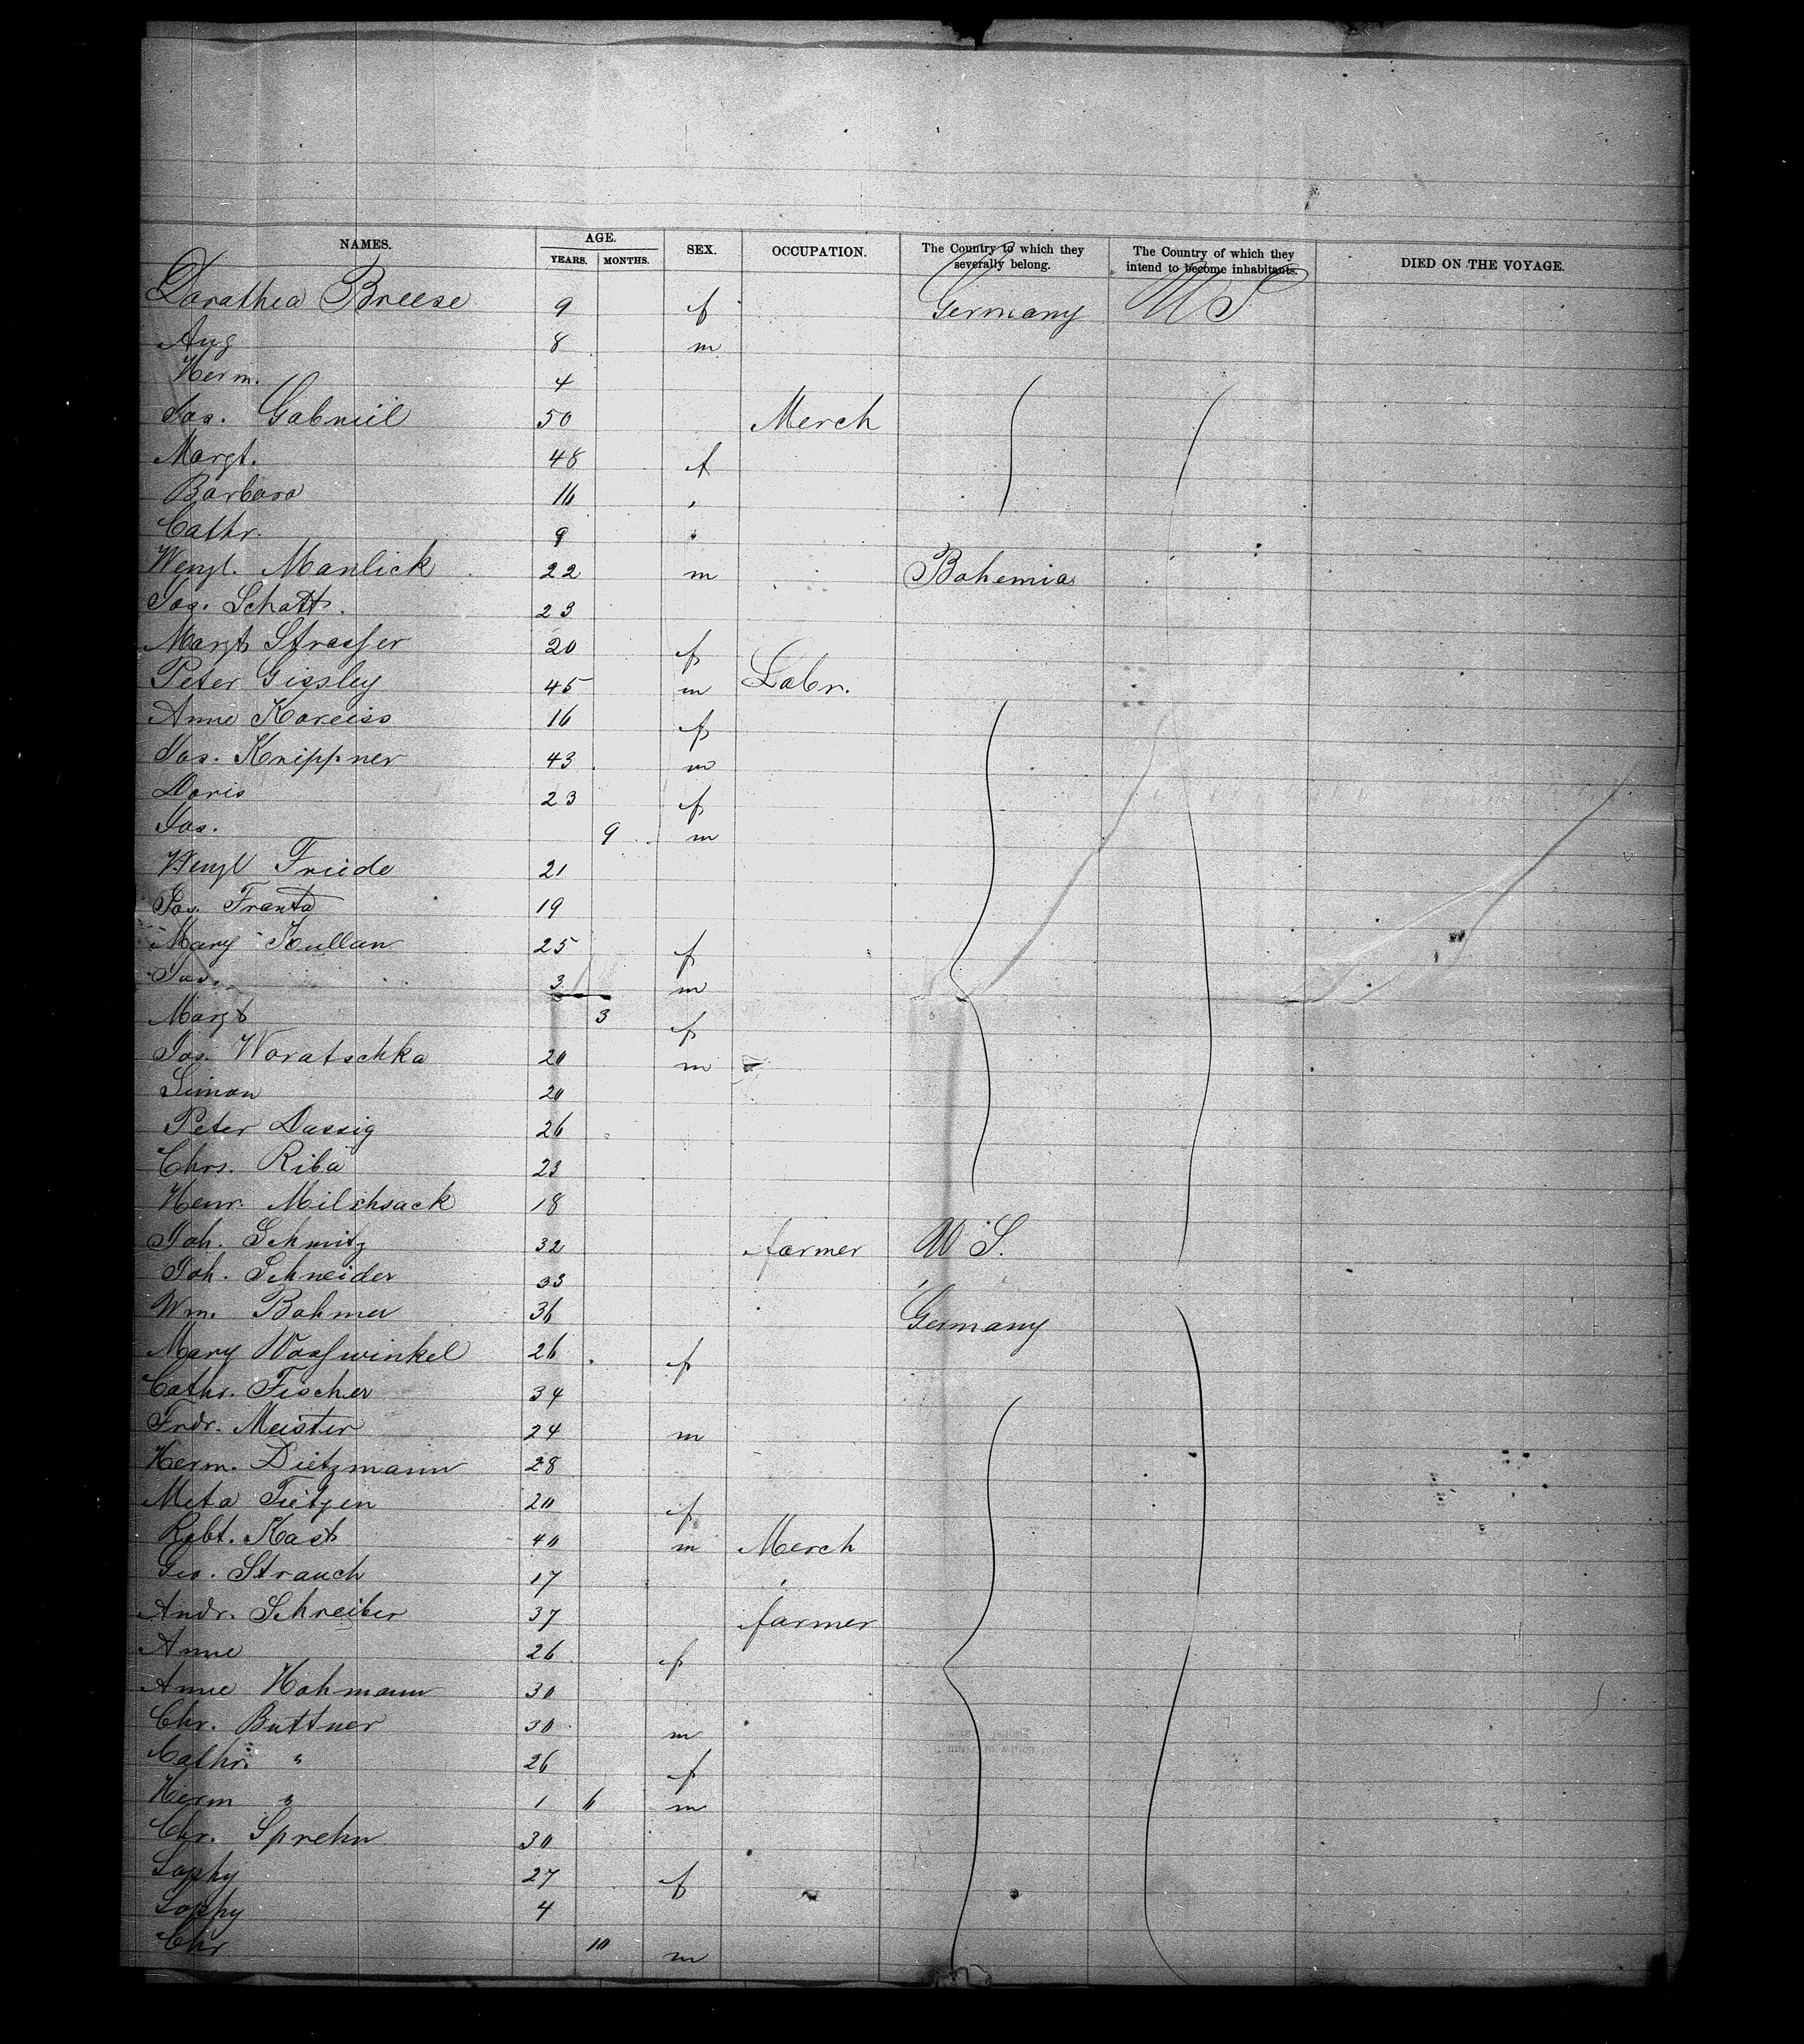 NAMES. AGE. SEX. OCCUPATION. The Country to which they severally belong. The Country of which they intend to become inhabitants. DIED ON THE VOYAGE.
YEARS. MONTHS.
Dorathea Breese 9 f Germany U S
Aug 8 m
Herm. 4
Jos. Gabriel 50 Merch
Margt. 48 f
Barbara 16 "
Cathr. 9 "
Wenzl. Manlick 22 m Bohemia
Jos. Schatt. 23
Margt Strasser 20 f
Peter Gissley 45 m Labr.
Anne Kareiss 16 f
Jos. Knippner 43 m
Doris 23 f
Jos. 9 m
Wenzl Friede 21
Jos. Franta 19
Mary Kullan 25 f
Jos. 3 m
Margt 3 f
Jos. Woratschka 20 m
Simon 20
Peter Dassig 26
Chrs. Riba 23
Henr. Milchsack 18
Joh. Schmitz 32 farmer U S.
Joh. Schneider 33 "
Wm. Bohmer 36 Germany
Mary Vosswinkel 26 f
Cathr. Fischer 34
Frdr. Meister 24 m
Herm. Dietzmann 28
Meta Tietzen 20 f
Robt. Kast 40 m Merch
Geo. Strauch 17 "
Andr. Schreiber 37 farmer
Anne 26 f
Anne Hohmann 30
Chr. Buttner 30 m
Cathr. " 26 f
Herm " 1 6 m
Chr. Sprehn 30
Sophy 27 f
Sophy 4
Chr 10 m